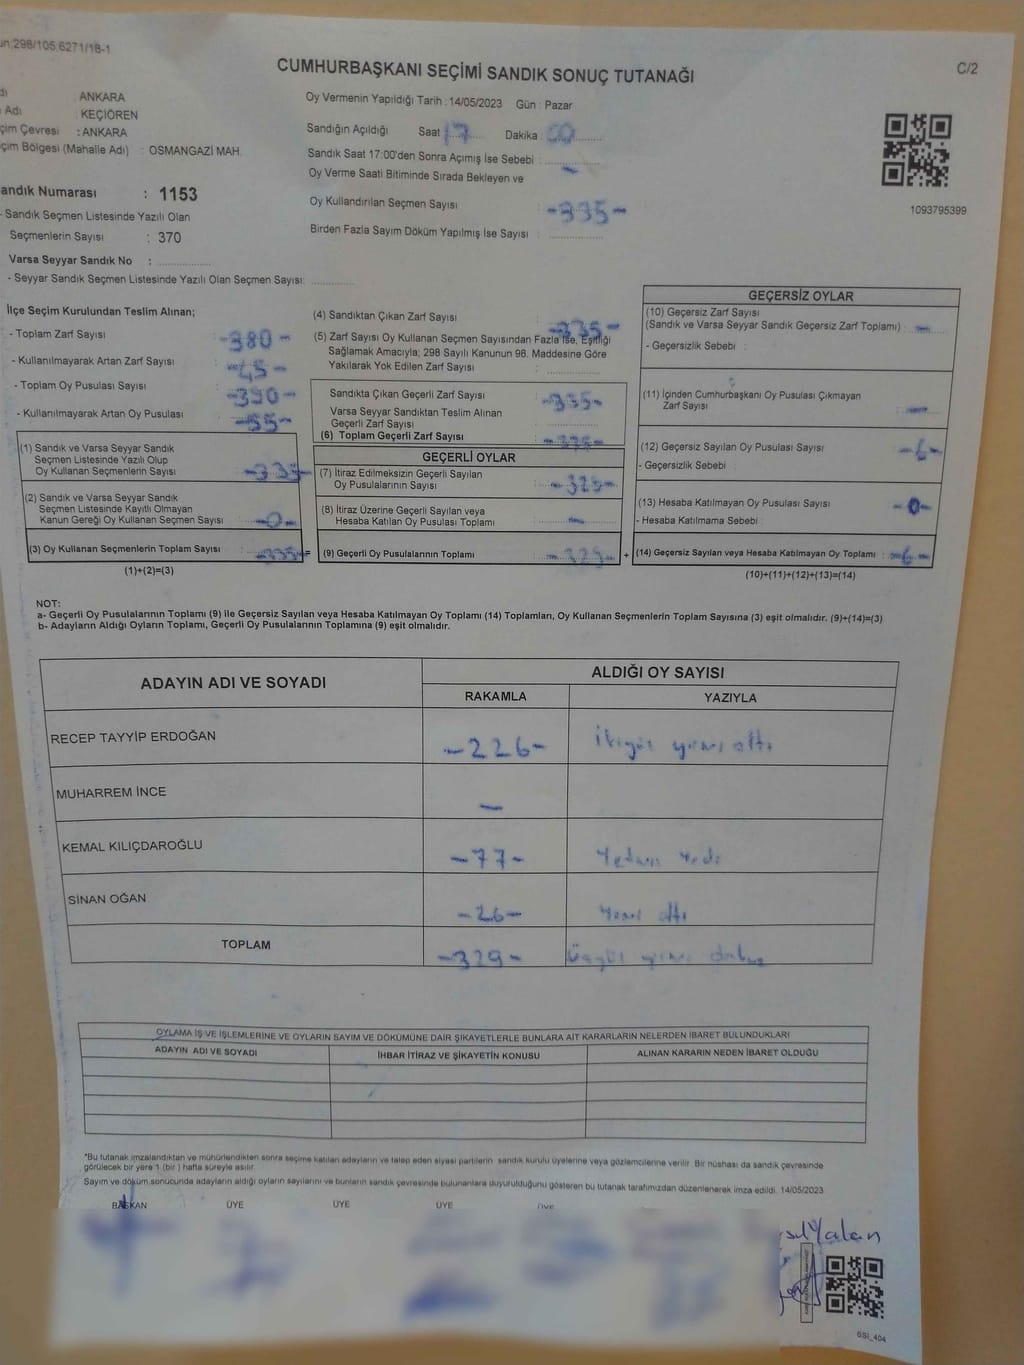 298/105,6271/18-1
CUMHURBAŞKANI SEÇİMİ SANDIK SONUÇ TUTANAĞI
C/2
: ANKARA
Adı : KEÇİÖREN
çim Çevresi : ANKARA
çim Bölgesi (Mahalle Adı) : OSMANGAZİ MAH.
andık Numarası : 1153
- Sandık Seçmen Listesinde Yazılı Olan
Seçmenlerin Sayısı : 370
Varsa Seyyar Sandık No :
- Seyyar Sandık Seçmen Listesinde Yazılı Olan Seçmen Sayısı:
Oy Vermenin Yapıldığı Tarih : 14/05/2023 Gün : Pazar
Sandığın Açıldığı Saat 17 Dakika : 00
Sandık Saat 17:00'den Sonra Açımış İse Sebebi :
Oy Verme Saati Bitiminde Sırada Bekleyen ve -
Oy Kullandırılan Seçmen Sayısı -335-
Birden Fazla Sayım Döküm Yapılmış İse Sayısı :
1093795399
İlçe Seçim Kurulundan Teslim Alınan;
- Toplam Zarf Sayısı : -380-
- Kullanılmayarak Artan Zarf Sayısı : -45-
- Toplam Oy Pusulası Sayısı : -390-
- Kullanılmayarak Artan Oy Pusulası : -55-
(1) Sandık ve Varsa Seyyar Sandık
Seçmen Listesinde Yazılı Olup
Oy Kullanan Seçmenlerin Sayısı : -335-
(2) Sandık ve Varsa Seyyar Sandık
Seçmen Listesinde Kayıtlı Olmayan
Kanun Gereği Oy Kullanan Seçmen Sayısı : -0-
(3) Oy Kullanan Seçmenlerin Toplam Sayısı : -335- =
(1)+(2)=(3)
(4) Sandıktan Çıkan Zarf Sayısı : -335-
(5) Zarf Sayısı Oy Kullanan Seçmen Sayısından Fazla İse, Eşitliği
Sağlamak Amacıyla; 298 Sayılı Kanunun 98. Maddesine Göre
Yakılarak Yok Edilen Zarf Sayısı :
Sandıkta Çıkan Geçerli Zarf Sayısı : -335-
Varsa Seyyar Sandıktan Teslim Alınan
Geçerli Zarf Sayısı :
(6) Toplam Geçerli Zarf Sayısı : -335-
GEÇERLİ OYLAR
(7) İtiraz Edilmeksizin Geçerli Sayılan
Oy Pusulalarının Sayısı : -329-
(8) İtiraz Üzerine Geçerli Sayılan veya
Hesaba Katılan Oy Pusulası Toplamı : -
(9) Geçerli Oy Pusulalarının Toplamı : -329- +
GEÇERSİZ OYLAR
(10) Geçersiz Zarf Sayısı
(Sandık ve Varsa Seyyar Sandık Geçersiz Zarf Toplamı) : -
- Geçersizlik Sebebi :
(11) İçinden Cumhurbaşkanı Oy Pusulası Çıkmayan
Zarf Sayısı : -
(12) Geçersiz Sayılan Oy Pusulası Sayısı : -6-
- Geçersizlik Sebebi :
(13) Hesaba Katılmayan Oy Pusulası Sayısı : -0-
- Hesaba Katılmama Sebebi :
(14) Geçersiz Sayılan veya Hesaba Katılmayan Oy Toplamı : -6-
(10)+(11)+(12)+(13)=(14)
NOT:
a- Geçerli Oy Pusulalarının Toplamı (9) ile Geçersiz Sayılan veya Hesaba Katılmayan Oy Toplamı (14) Toplamları, Oy Kullanan Seçmenlerin Toplam Sayısına (3) eşit olmalıdır. (9)+(14)=(3)
b- Adayların Aldığı Oyların Toplamı, Geçerli Oy Pusulalarının Toplamına (9) eşit olmalıdır.
ADAYIN ADI VE SOYADI
ALDIĞI OY SAYISI
RAKAMLA YAZIYLA
RECEP TAYYİP ERDOĞAN -226- İkiyüz yirmi altı
MUHARREM İNCE -
KEMAL KILIÇDAROĞLU -77- Yetmiş Yedi
SİNAN OĞAN -26- Yirmi altı
TOPLAM -329- Üçyüz yirmi dokuz
OYLAMA İŞ VE İŞLEMLERİNE VE OYLARIN SAYIM VE DÖKÜMÜNE DAİR ŞİKAYETLERLE BUNLARA AİT KARARLARIN NELERDEN İBARET BULUNDUKLARI
ADAYIN ADI VE SOYADI İHBAR İTİRAZ VE ŞİKAYETİN KONUSU ALINAN KARARIN NEDEN İBARET OLDUĞU
*Bu tutanak imzalandıktan ve mühürlendikten sonra seçime katılan adayların ve talep eden siyasi partilerin sandık kurulu üyelerine veya gözlemcilerine verilir. Bir nüshası da sandık çevresinde
görülecek bir yere 1 (bir) hafta süreyle asılır.
Sayım ve döküm sonucunda adayların aldığı oyların sayılarını ve bunların sandık çevresinde bulunanlara duyurulduğunu gösteren bu tutanak tarafımızdan düzenlenerek imza edildi. 14/05/2023
BAŞKAN ÜYE ÜYE ÜYE ÜYE
Yalan
GSI_404